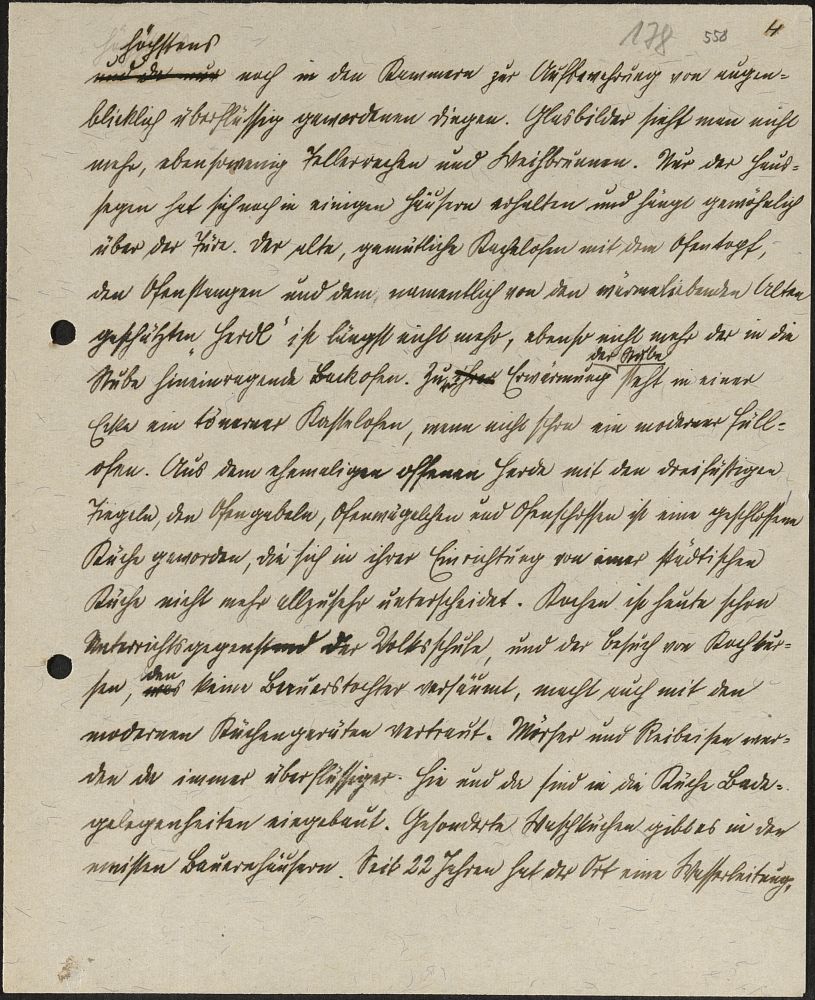 178 558 4
höchstens
und da nur noch in den Kammern zur Aufbewahrung von augen-
blicklich überflüssig gewordenen Dingen. Glasbilder sieht man nicht
mehr, ebensowenig Tellerrechen und Weihbrunnen. Nur der Haus-
segen hat sich noch in einigen Häusern erhalten und hängt gewöhnlich
über der Türe. Der alte, gemütliche Kachelofen mit dem Ofentopf,
den Ofenstangen und dem, namentlich von den wärmeliebenden Alten
geschätzten "Herdl" ist längst nicht mehr, ebenso nicht mehr der in die
der Stube
Stube hineinragende Backofen. Zur ihrer Erwärmung steht in einer
Ecke ein tönerner Kastelofen, wenn nicht schon ein moderner Füll-
ofen. Aus dem ehemaligen offenen Herde mit den dreifüßigen
Tiegeln, den Ofengabeln, Ofenwägelchen und Ofenschüssen ist eine geschlossene
Küche geworden, die sich in ihrer Einrichtung von einer städtischen
Küche nicht mehr allzusehr unterscheidet. Kochen ist heute schon
Unterrichtsgegenstand der Volksschule, und der Besuch von Kochkur-
den
sen, was keine Bauerstochter versäumt, macht auch mit den
modernen Küchengeräten vertraut. Mörser und Reibeisen wer-
den da immer überflüssiger. Hie und da sind in die Küche Bade-
gelegenheiten eingebaut. Gesonderte Waschküchen gibt es in den
meisten Bauernhäusern. Seit 22 Jahren hat der Ort eine Wasserleitung,